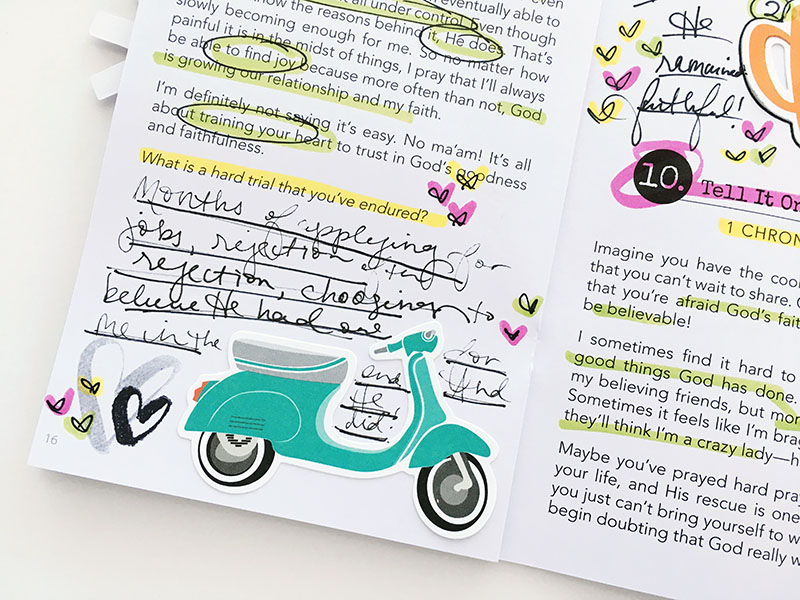 all under control. Even though
slowly becoming enough for me. So no matter how
know the reasons behind it, He does. That's
painful it is in the midst of things, I pray that I'll always
be able to find joy because more often than not, God
is growing our relationship and my faith.
I'm definitely not saying it's easy. No ma'am! It's all
about training your heart to trust in God's goodness
and faithfulness.
What is a hard trial that you've endured?
Months of applying for
jobs, rejection after
rejection, choosing to
believe He had one
me in the
for
end. And
He
did.
16
He
remained
faithful!
10. Tell It On
1 CHRON
Imagine you have the coo
that you can't wait to share.
that you're afraid God's fait
be believable!
I sometimes find it hard to
good things God has done.
my believing friends, but mor
Sometimes it feels like I'm brag
they'll think I'm a crazy lady—h
Maybe you've prayed hard pra
your life, and His rescue is one
you just can't bring yourself to w
begin doubting that God really w